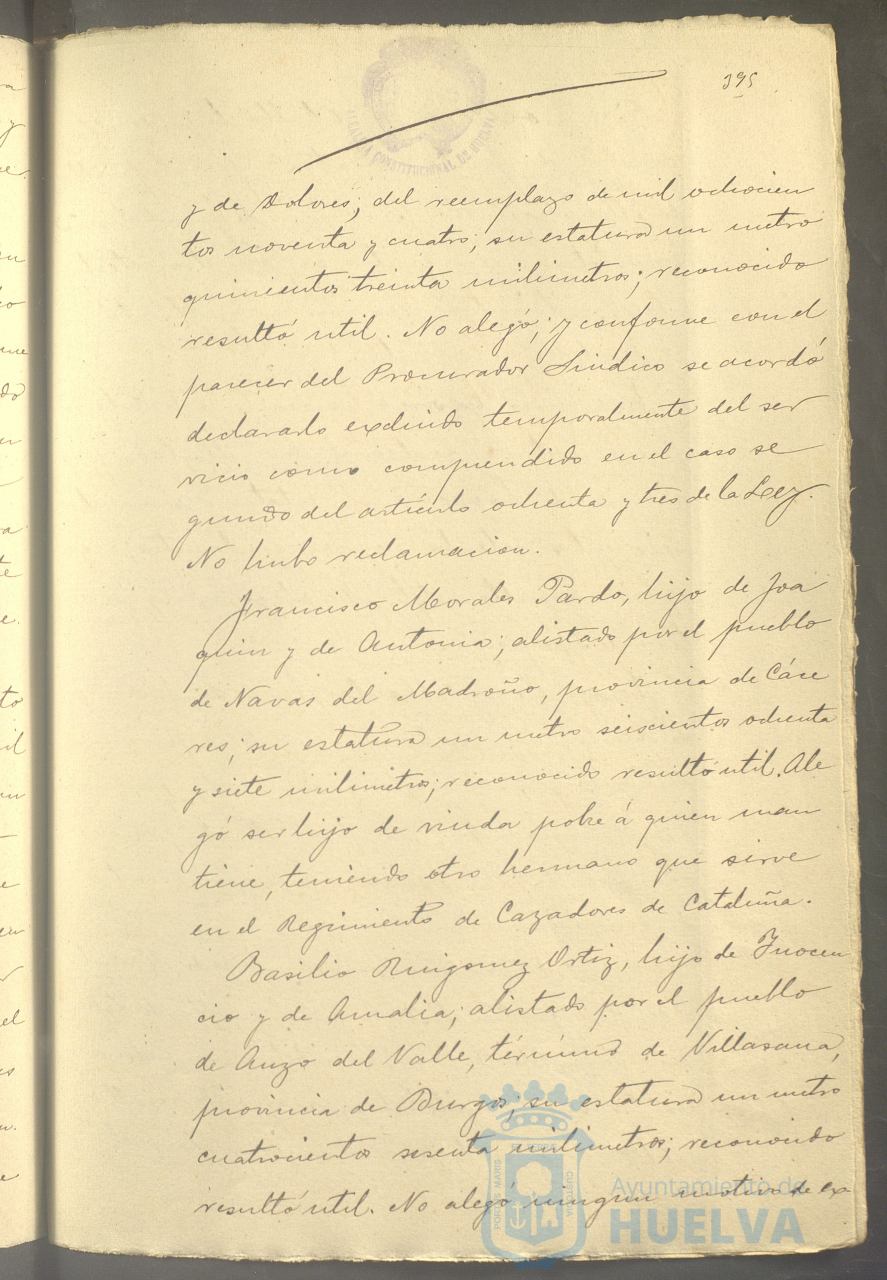 395
ALCALDIA CONSTITUCIONAL DE HUELVA
y de Dolores, del reemplazo de mil ochocien
tos noventa y cuatro; su estatura un metro
quinientos treinta milimetros; reconocido
resultó util. No alegó; y conforme con el
parecer del Procurador Sindico se acordó
declararlo excluido temporalmente del ser
vicio como comprendido en el caso se
gundo del artículo ochenta y tres de la Ley.
No hubo reclamacion.
Francisco Morales Pardo, hijo de Joa
quin y de Antonia; alistado por el pueblo
de Navas del Madroño, provincia de Cáce
res; su estatura un metro seiscientos ochenta
y siete milimetros; reconocido resultó util. Ale
gó ser hijo de viuda pobre á quien man
tiene, teniendo otro hermano que sirve
en el Regimiento de Cazadores de Cataluña.
Basilio Ruigomez Ortiz, hijo de Inocen
cio y de Amalia; alistado por el pueblo
de Anzo del Valle, término de Villasana,
provincia de Burgos; su estatura un metro
cuatrocientos sesenta milimetros; reconocido
resultó util. No alegó ningun motivo de ex-
PORTUS MARIS
CUSTODIA
Ayuntamiento de
HUELVA